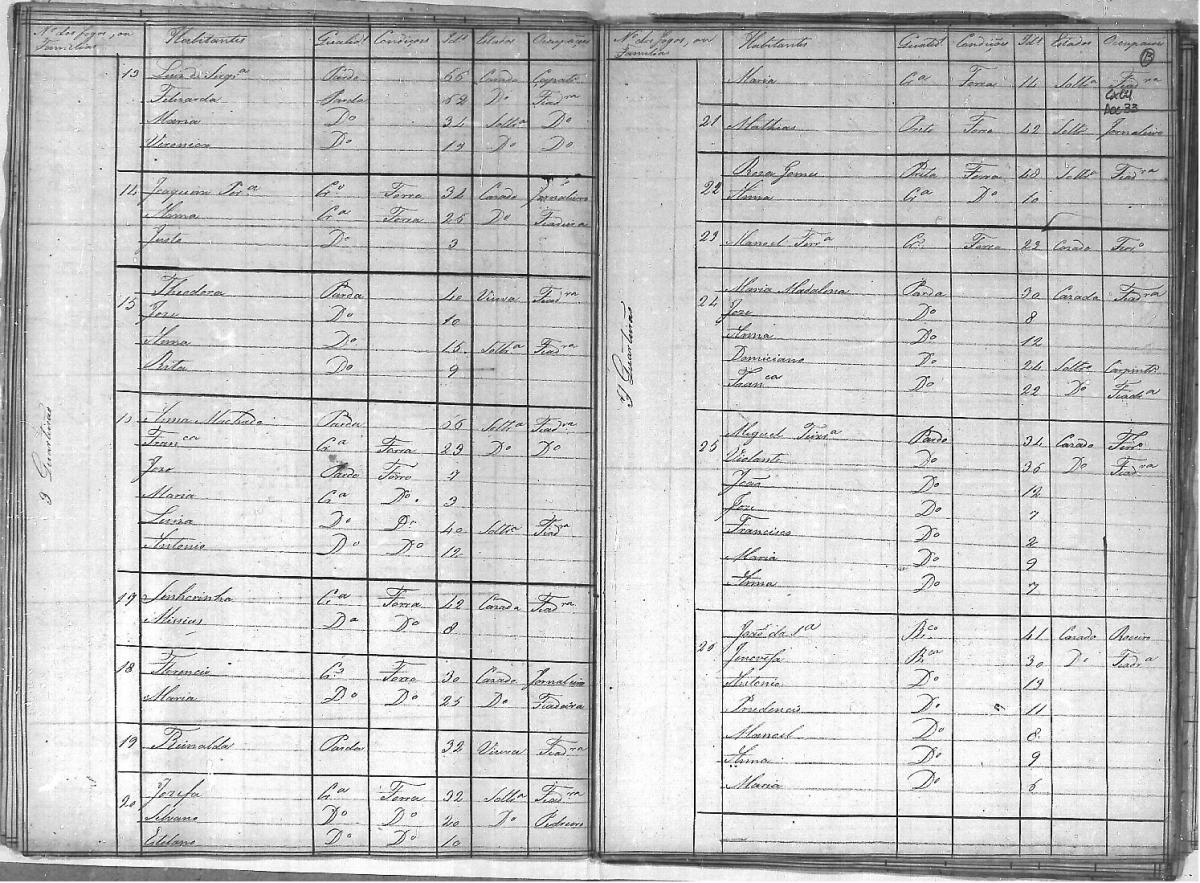 Nº dos fogos, ou Familias Habitantes Qualidᵉ Condições Idᵉ Estados Occupações
13 Luis de Pardo 66 Casado
Felizarda Parda 62 Dº Fiadʳᵃ
Maria Dº 34 Soltʳᵃ Dº
Veronica Dº 19 Dº Dº
14 Joaquim Perᵃ Crº Forro 34 Casado Jornaleiro
Crᵃ Forra 25 Dº Fiadeira
Justo Dº 3
15 Theodora Parda 40 Viuva Fiadʳᵃ
Joze Dº 10
Anna Dº 15 Soltʳᵃ Fiadʳᵃ
Rita Dº 9
Anna Machado Parda 56 Soltʳᵃ Fiadʳᵃ
Franᶜᵃ Crᵃ Forra 23 Dº Dº
Joze Pardo Forro 7
Maria Crᵃ Dº 3
Dº Dº 40 Soltʳᵃ Fiadʳᵃ
Antonio Dº Dº 12
17 Senhorinha Crᵃ Forra 42 Casada Fiadʳᵃ
Dº Dº 8
18 Florencio Crº Forro 30 Casado Jornaleiro
Maria Dº Dº 25 Dº Fiadeira
19 Reinalda Parda 32 Viuva Fiadʳᵃ
20 Jozefa Crᵃ Forra 32 Soltʳᵃ Fiadʳᵃ
Silvano Dº Dº 20 Dº Pedreiro
Dº Dº 10
Quarteirão
Nº dos fogos, ou Familia Habitantes Qualidᵉ Condições Idᵉ Estados Occupações
13
Maria Crᵃ Forra 14 Soltʳᵃ Fiadʳᵃ
CX 04
Doc 33
21 Mathias Preto Forro 42 Soltº Jornaleiro
22 Roza Gomes Preta Forra 48 Soltʳᵃ Fiadʳᵃ
Anna Crᵃ Dº 10
23 Manoel Ferrᵃ Crº Forro 22 Casado
24 Maria Madalena Parda 30 Casada Fiadʳᵃ
Joze Dº 8
Anna Dº 12
Domiciano Dº 24 Soltº Carpintº
Franᶜᵃ Dº 22 Dº Fiadʳᵃ
25 Miguel Pardo 34 Casado
Violante Dº 36 Dº Fiadʳᵃ
João Dº 12
Joze Dº 7
Francisco Dº 2
Maria Dº 9
Anna Dº 7
Joze da Sᵃ Bᶜº 41 Casado Roceiro
Jenovefa Bᶜᵃ 30 Dº Fiadʳᵃ
Antonio Dº 13
Prudencio Dº 11
Manoel Dº 8
Anna Dº 9
Maria Dº 6
Quarteirão